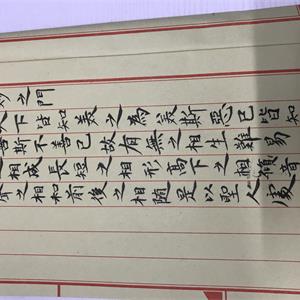 妙之門
天下皆知美之為美斯惡已皆知
善斯不善已故有無之相生難易
之相成長短之相形高下之相傾音
聲之相和前後之相隨是以聖人處